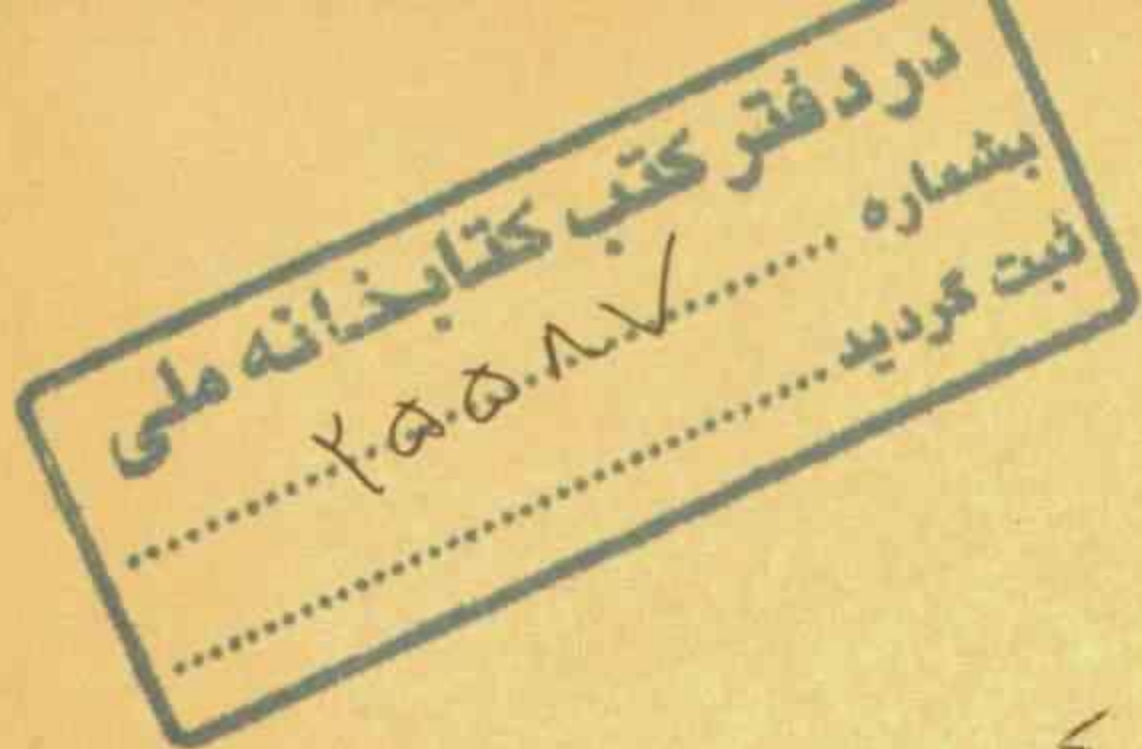 در دفتر کتب کتابخانه ملی
بشماره ........ ۲۵۵۸۷ ........
ثبت گردید ................